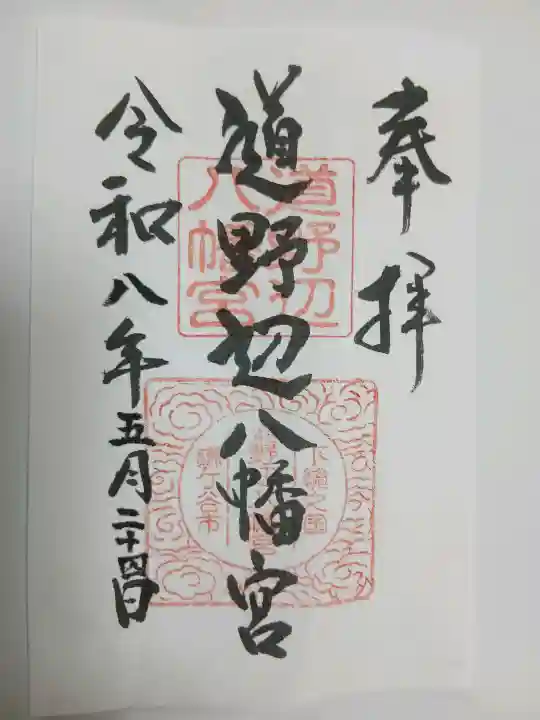 奉拝
道野辺八幡宮
令和八年五月二十四日
道野辺
八幡宮
下総之国
鎌ケ谷市